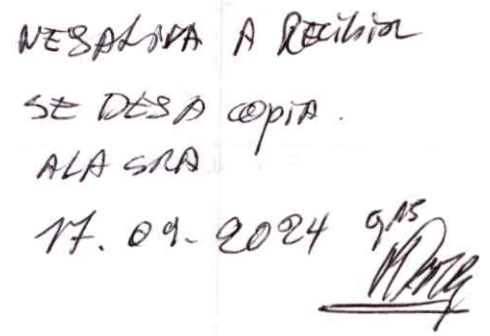 NEGATIVA A RECIBIR
SE DEJA COPIA.
A LA SRA
17.09-2024 9,15